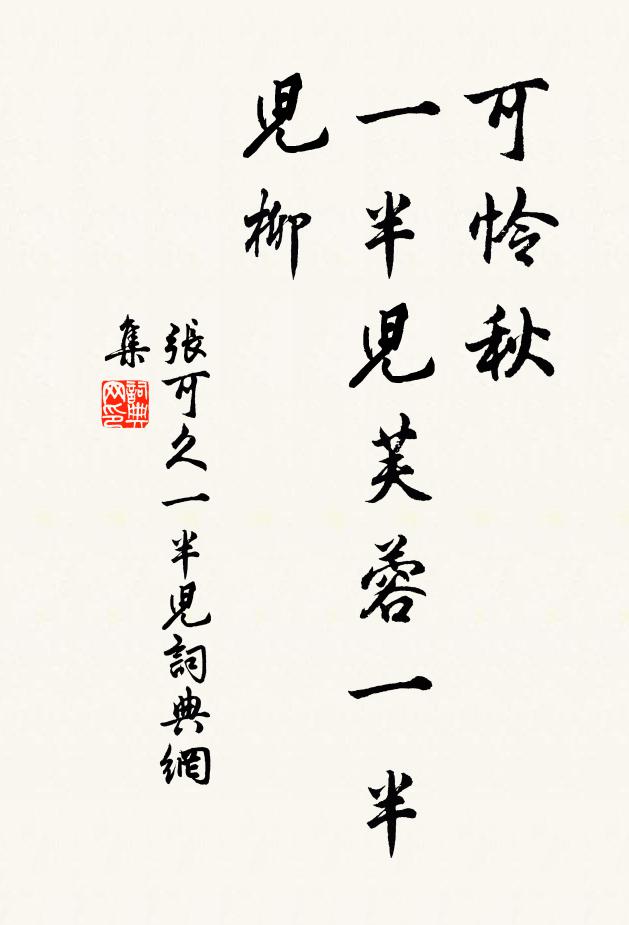 可怜秋
一半兒芙蓉一半
兒柳
張可久一半兒詞典網
集
詞典
网印